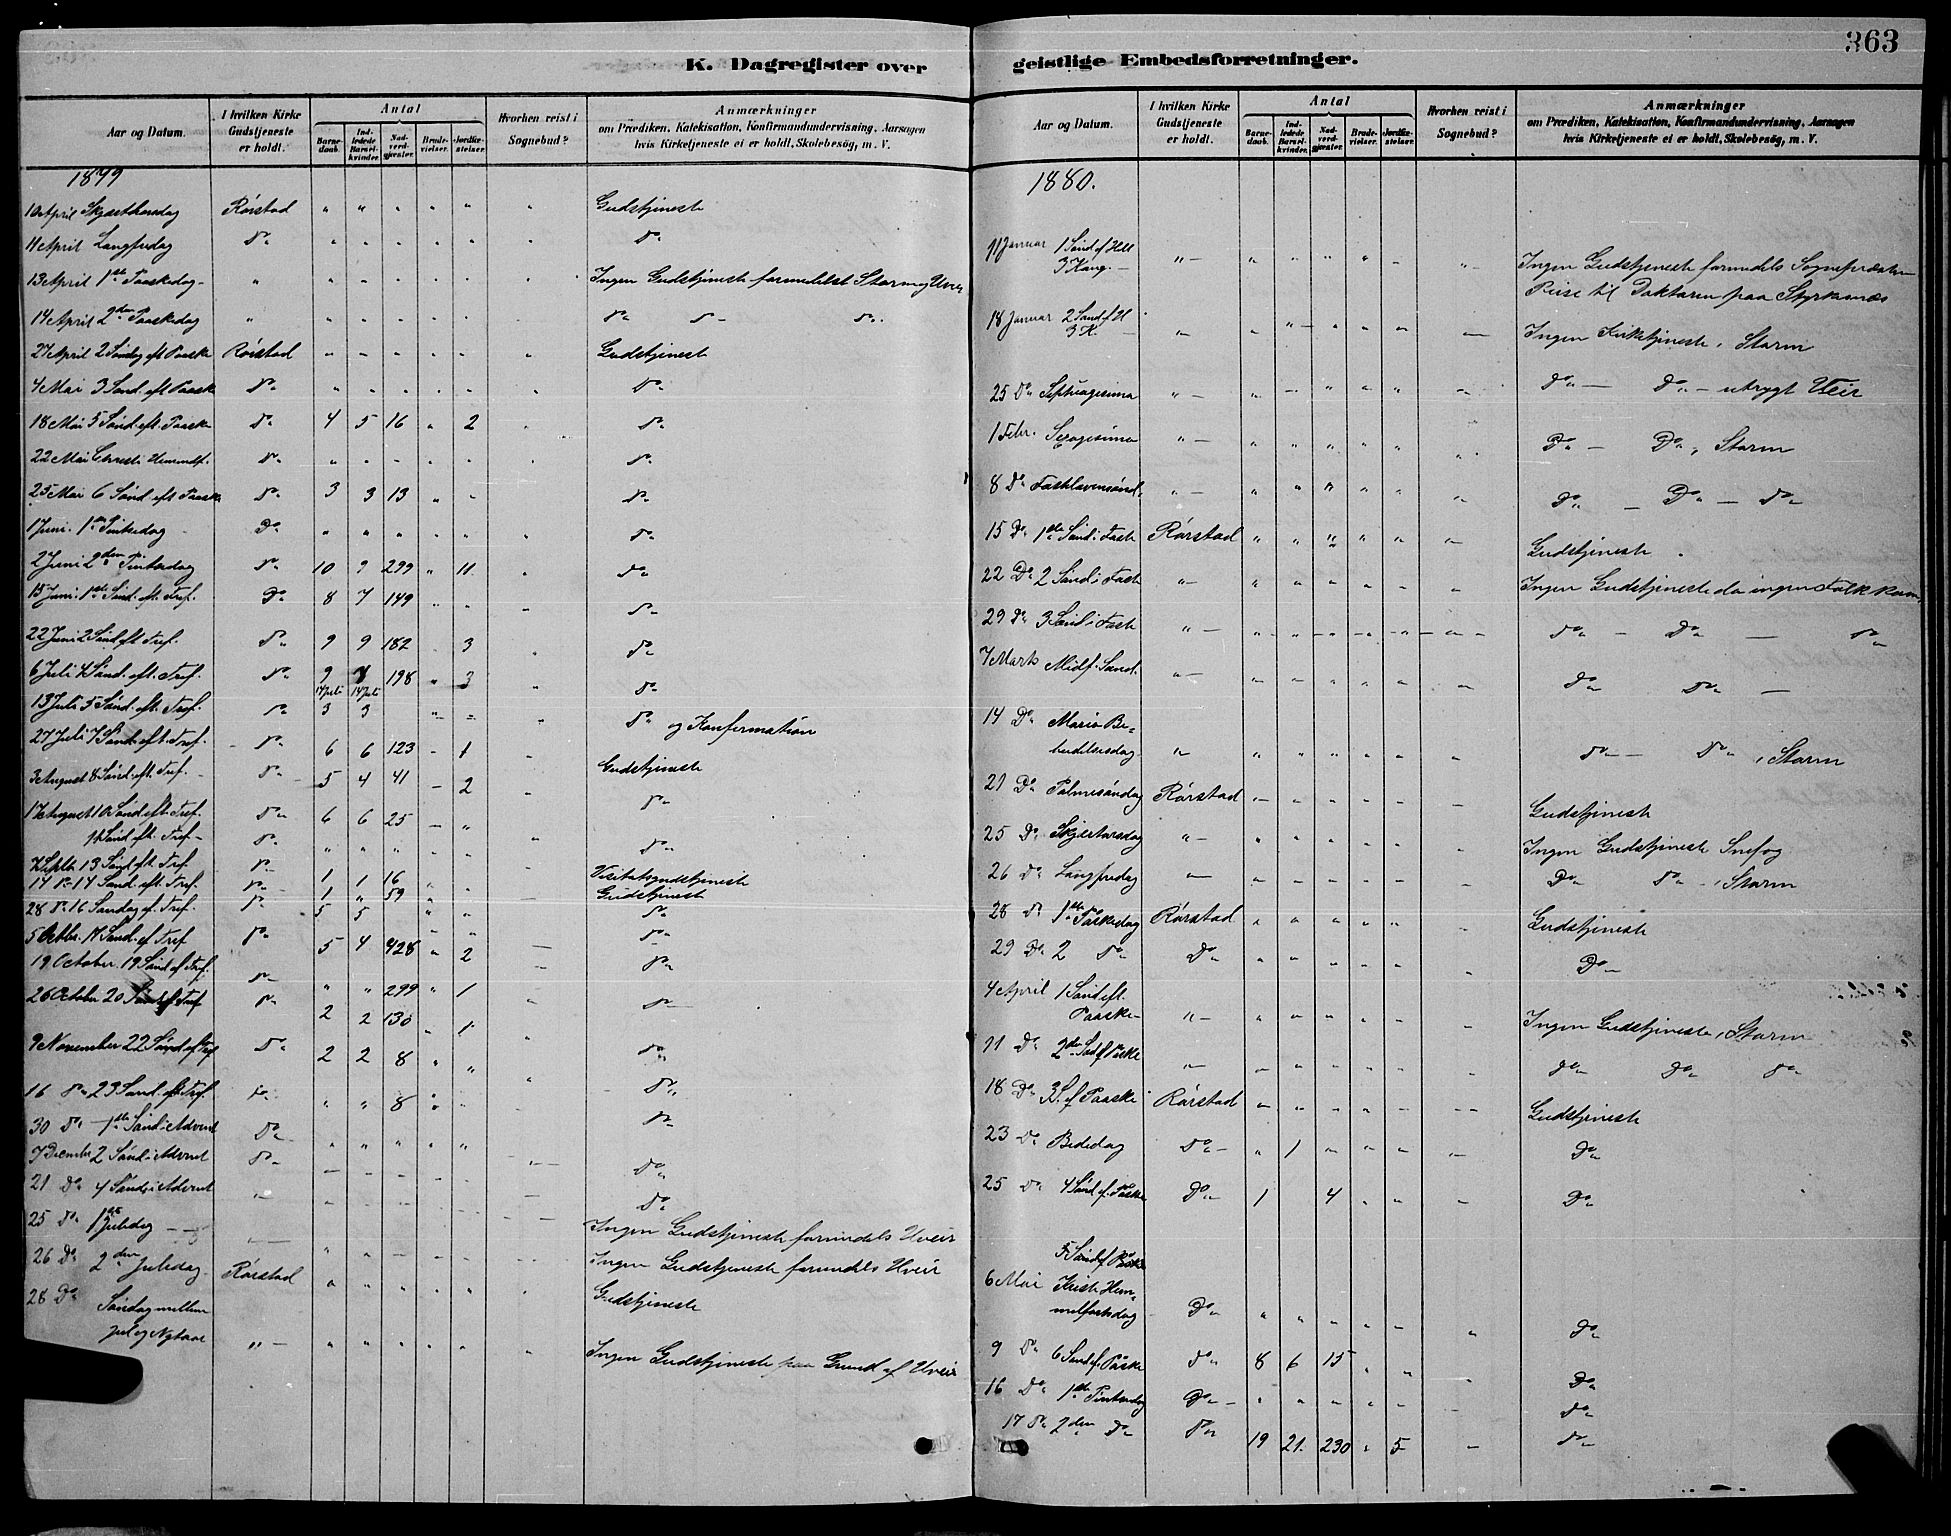 363
K. Dagregister over geistlige Embedsforretninger.
Aar og Datum. I hvilken Kirke Gudstjeneste er holdt. Antal Barnedaab. Indledede Barselkvinder. Nadverdgjæster. Brudevielser. Jordfæstelser. Hvorhen reist i Sognebud? Anmærkninger om Prædiken, Katekisation, Konfirmandundervisning, Aarsagen hvis Kirketjeneste ei er holdt, Skolebesög, m. V.
1879
10 April Skjærthorsdag Rörstad " " " " " " Gudstjeneste
11 April Langfredag Do " " " " " " Do
13 April 1ste Paaskedag " " " " " " " Ingen Gudstjeneste formedelst Storm og Uveir
14 April 2den Paaskedag " " " " " " " Do Do Do
27 April 2 Söndag eft Paaske Rörstad " " " " " " Gudstjeneste
4 Mai 3 Sönd. eft Paaske Do " " " " " " Do
18 Mai 5 Sönd. eft. Paaske Do 4 5 16 " 2 " Do
22 Mai Christi Himmelf. Do " " " " " " Do
25 Mai 6 Sönd. eft Paaske Do 3 3 13 " " Do
1 Juni. 1ste Pintsedag Do " " " " " " Do
2 Juni 2den Pintsedag Do 10 9 299 " 11 " Do
15 Juni. 1ste Sönd. eft. Tref. Do 8 7 149 " " " Do
22 Juni 2 Sönd eft Tref. Do 9 9 182 3 " Do
6 Juli 4 Sönd. eft. Tref. Do 9 198 " 3 " Do
14 Juli 14 Juli
13 Juli 5 Sönd. eft. Tref. Do 3 3 " " " Do og Konfirmation
27 Juli 7 Sönd. eft. Tref. Do 6 6 123 - 1 " Gudstjeneste
3 August 8 Sönd. eft. Tref. Do 5 4 41 - 2 " Do
17 August 10 Sönd eft. Tref. Do 6 6 25 - " " Do
Sönd. eft. Tref. Do " " " " "
7 Septbr 13 Sönd. eft. Tref. Do 1 1 16 " " Visitatsgudstjeneste
14 Do 14 Sönd. eft. Tref. Do 1 " 59 " " - Gudstjeneste
28 Do 16 Söndag ef. Tref. Do 5 5 " " Do
5 Octbr. 17 Sönd. ef Tref Do 5 4 428 " 2 - Do
19 October 19 Sönd ef Tref. Do " " 299 " 1 - Do
26 October 20 Sönd ef Tref Do 2 2 130 " 1 " Do
9 November 22 Sönd eft Tref Do 2 2 8 " " " Do
16 Do 23 Sönd. eft Tref. Do " " 8 " " " Do
30 Do 1ste Sönd i Advent Do " " " " " Do
7 December 2 Sönd i Advent Do - - - - - - Do
21 Do 4 Sönd. i Advent " - - - - - - Do
25 Do 1ste Juledag - - - - - - - Ingen Gudstjeneste formedels Uveir
26 Do 2den Juledag " " - - " - Ingen Gudstjeneste formedels Uveir
28 Do Söndag mellem Rörstad " " " " " " Gudstjeneste
Jul og Nytaar " - " " " " " " Ingen Gudstjeneste paa Grund af Uveir
Aar og Datum. I hvilken Kirke Gudstjeneste er holdt. Antal Barnedaab. Indledede Barselkvinder. Nadverdgjæster. Brudevielser. Jordfæstelser. Hvorhen reist i Sognebud? Anmærkninger om Prædiken, Katekisation, Konfirmandundervisning, Aarsagen hvis Kirketjeneste ei er holdt, Skolebesög, m. V.
1880.
11 Januar 1 Sönd ef Hell
3 Kong. " - " " " " - " - Ingen Gudstjeneste formedels Sognepræsten
Reise til Doktoren paa Styrkesnæs
18 Januar 2 Sönd. f H
3 K. " " " - " " " - Ingen Kirketjeneste, Storm
25 Do Septuagesima " - " - " " " " Do - Do - utrygt Veir
1 Febr. Sexagesima " - " " " " " " Do - Do, Storm
8 Do Fastelavenssönd. " - " " " " " " Do - Do - Do
15 Do 1ste Sönd i Faste Rörstad " " " " " " Gudstjeneste
22 Do 2 Sönd i Faste " - " " " " " " Ingen Gudstjeneste da ingen Folk kom,
29 Do 3 Sönd i Faste " - " - " - " - " - " - " - Do - Do - Do
7 Marts Midf. Sönd. " - " " " " " " Do Do -
14 Do Maria Be=
budelsesdag " " " " " " " Do - Do, Storm
21 Do Palmesöndag Rörstad " " " " " - Gudstjeneste
25 Do Skjærtorsdag " - " " " " " " Ingen Gudstjeneste Snefog
26 Do Langfredag " " " " " " " Do Do -, Storm
28 Do 1ste Paaskedag Rörstad " " " " " " Gudstjeneste
29 Do 2 Do Do " " " " " " Do
4 April 1 Sönd eft.
Paaske - " - " " " " " " Ingen Gudstjeneste, Storm
11 Do 2den Sönd f Paske " " " " " " " Do Do Do
18 Do 3 S. f Paaske Rörstad " " " " " - - Gudstjeneste
23 Do Bededag Do - " 1 " " " " Do
25 Do 4 Sönd ef. Paaske Do 1 4 " " " Do
5 Sönd ef Paaske
6 Mai Kristi Him=
melfartsdag Do " " " " " " Do
9 Do 6 Sönd ef. Paaske Do 8 6 15 " " " Do
16 Do 1ste Pintsedag Do - " " " " " " Do
17 Do 2den Do Do 19 21. 230 " 5 " Do